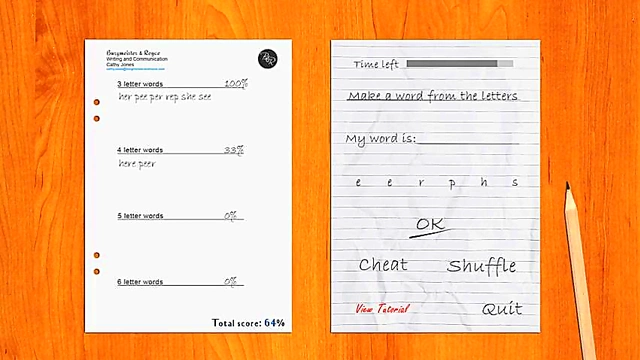 Burgmeister & Royce
Writing and Communication
Cathy Jones
3 letter words 100%
her pee per rep she see
4 letter words 33%
here peer
5 letter words 0%
6 letter words 0%
Total score: 64%
Time left
Make a word from the letters
My word is:
e e r p h s
OK
Cheat Shuffle
View Tutorial Quit